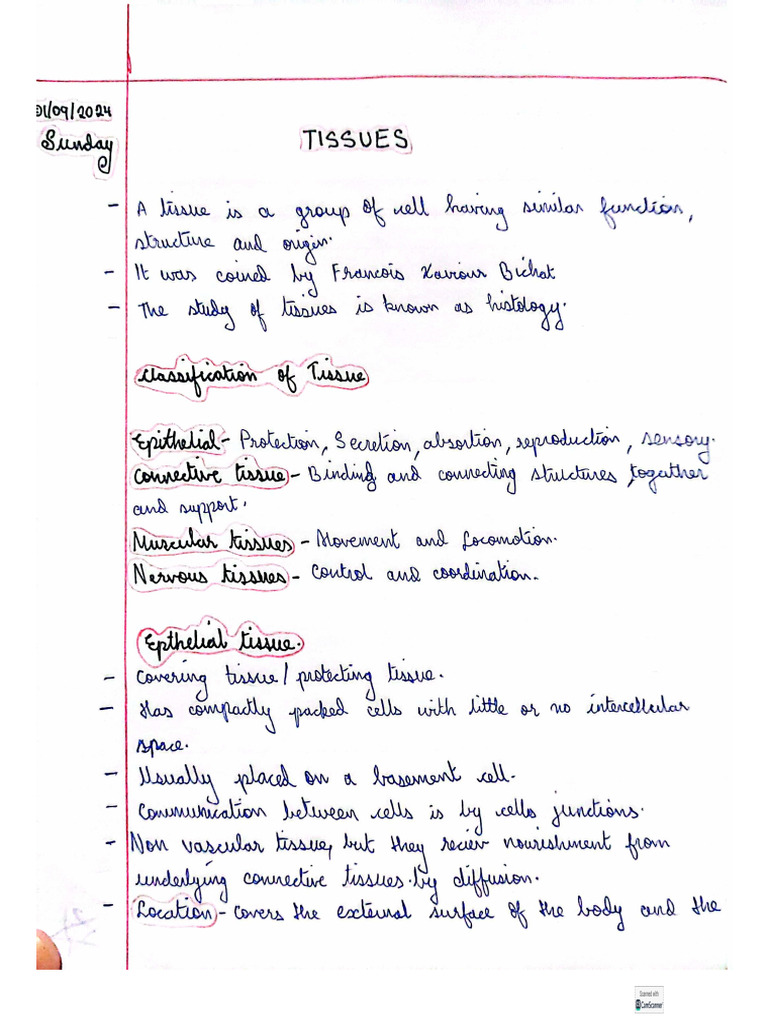 01/09/2024
Sunday
TISSUES
- A tissue is a group of cell having similar function,
structure and origin.
- It was coined by Francois Xaviour Bichat
- The study of tissues is known as histology.
Classification of Tissue
Epithelial - Protection, Secretion, absortion, reproduction, sensory.
Connective tissue - Binding and connecting structures, together
and support.
Muscular tissues - Movement and Locomotion.
Nervous tissues - Control and coordination.
Epthelial tissue.
- Covering tissue/protecting tissue.
- Has compactly packed cells with little or no intercellular
space.
- Usually placed on a basement cell.
- Communication between cells is by cells junctions.
- Non vascular tissue, but they reciev nourishment from
underlying connective tissues. by diffusion.
- Location - Covers the external surface of the body and the
Scanned with
CamScanner